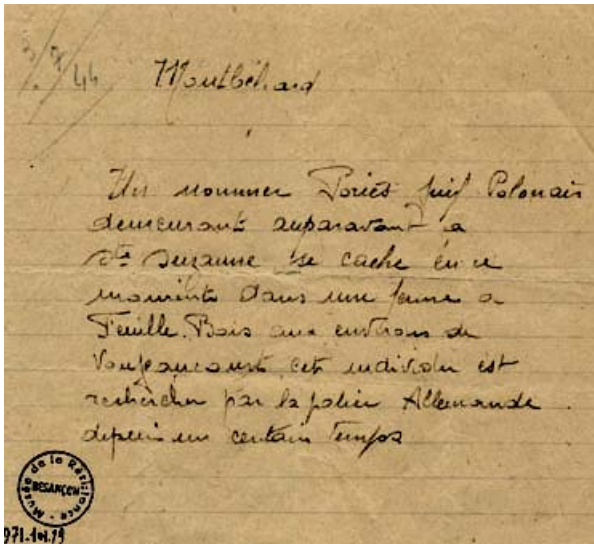 3/7/44
Montbéliard
Un nommer Poriès juif Polonais
demeurant auparavant a
Ste Suzanne se cache en ce
moments dans une ferme a
Feuille. Bois aux environs de
Voujeaucourt cet individu est
rechercher par la police Allemande
depuis un certain temps
Musée de la Résistance
BESANÇON
971.101.19